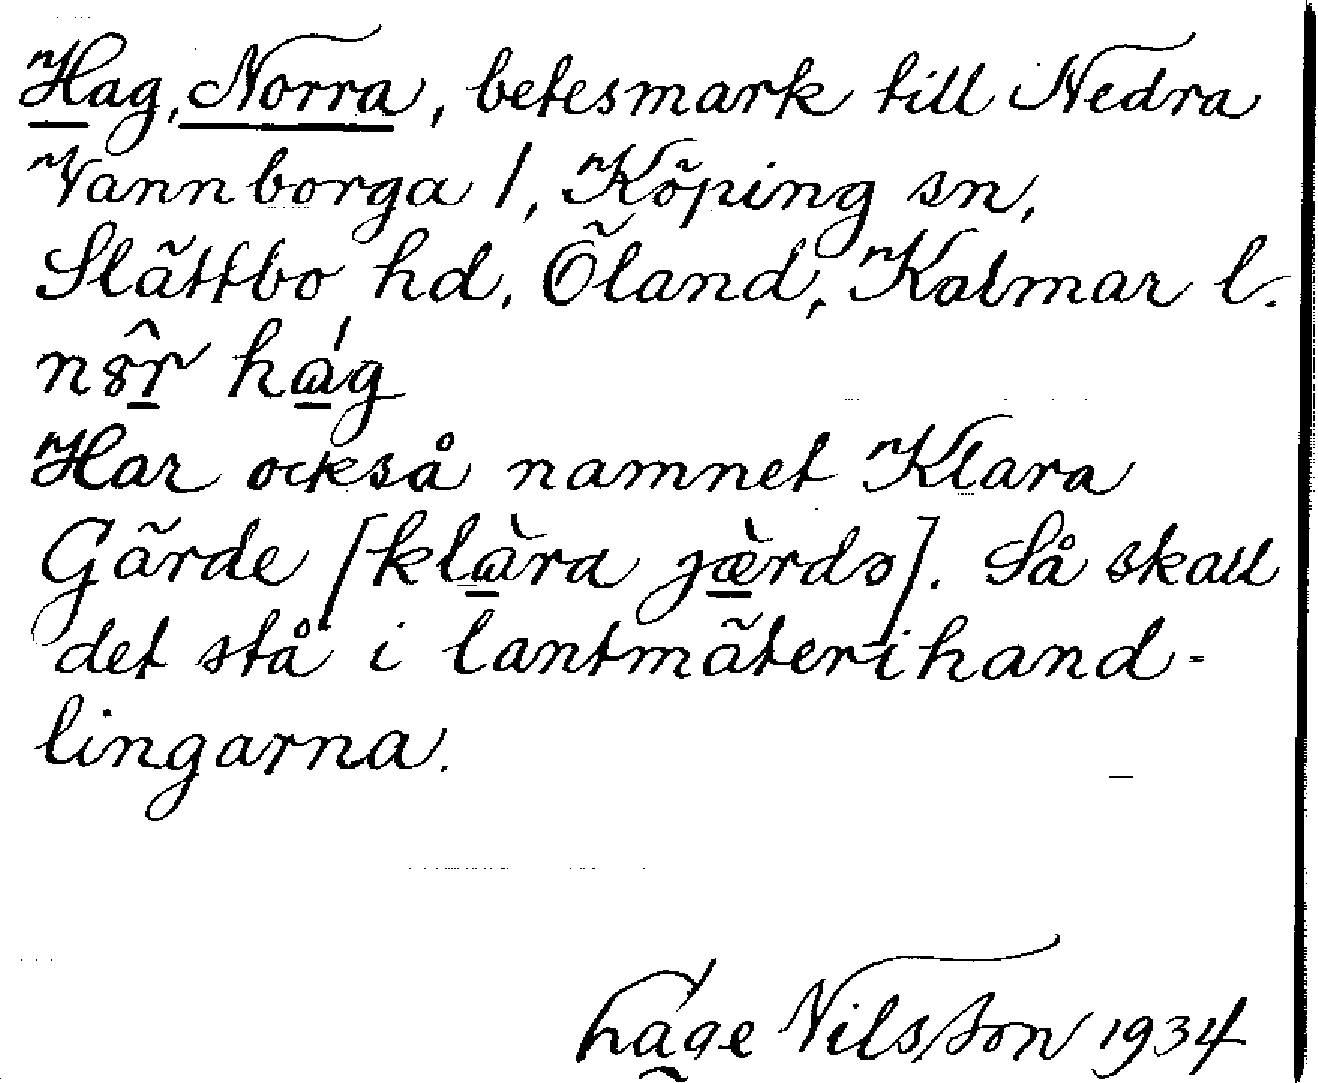 Hag, Norra, betesmark till Nedra
Vannborga 1, Köping sn,
Slättbo hd, Öland, Kalmar l.
nör hag
Har också namnet Klara
Gärde [klàra jæ̀rdə]. Så skall
det stå i lantmäterihand-
lingarna.
Nilsson 1934